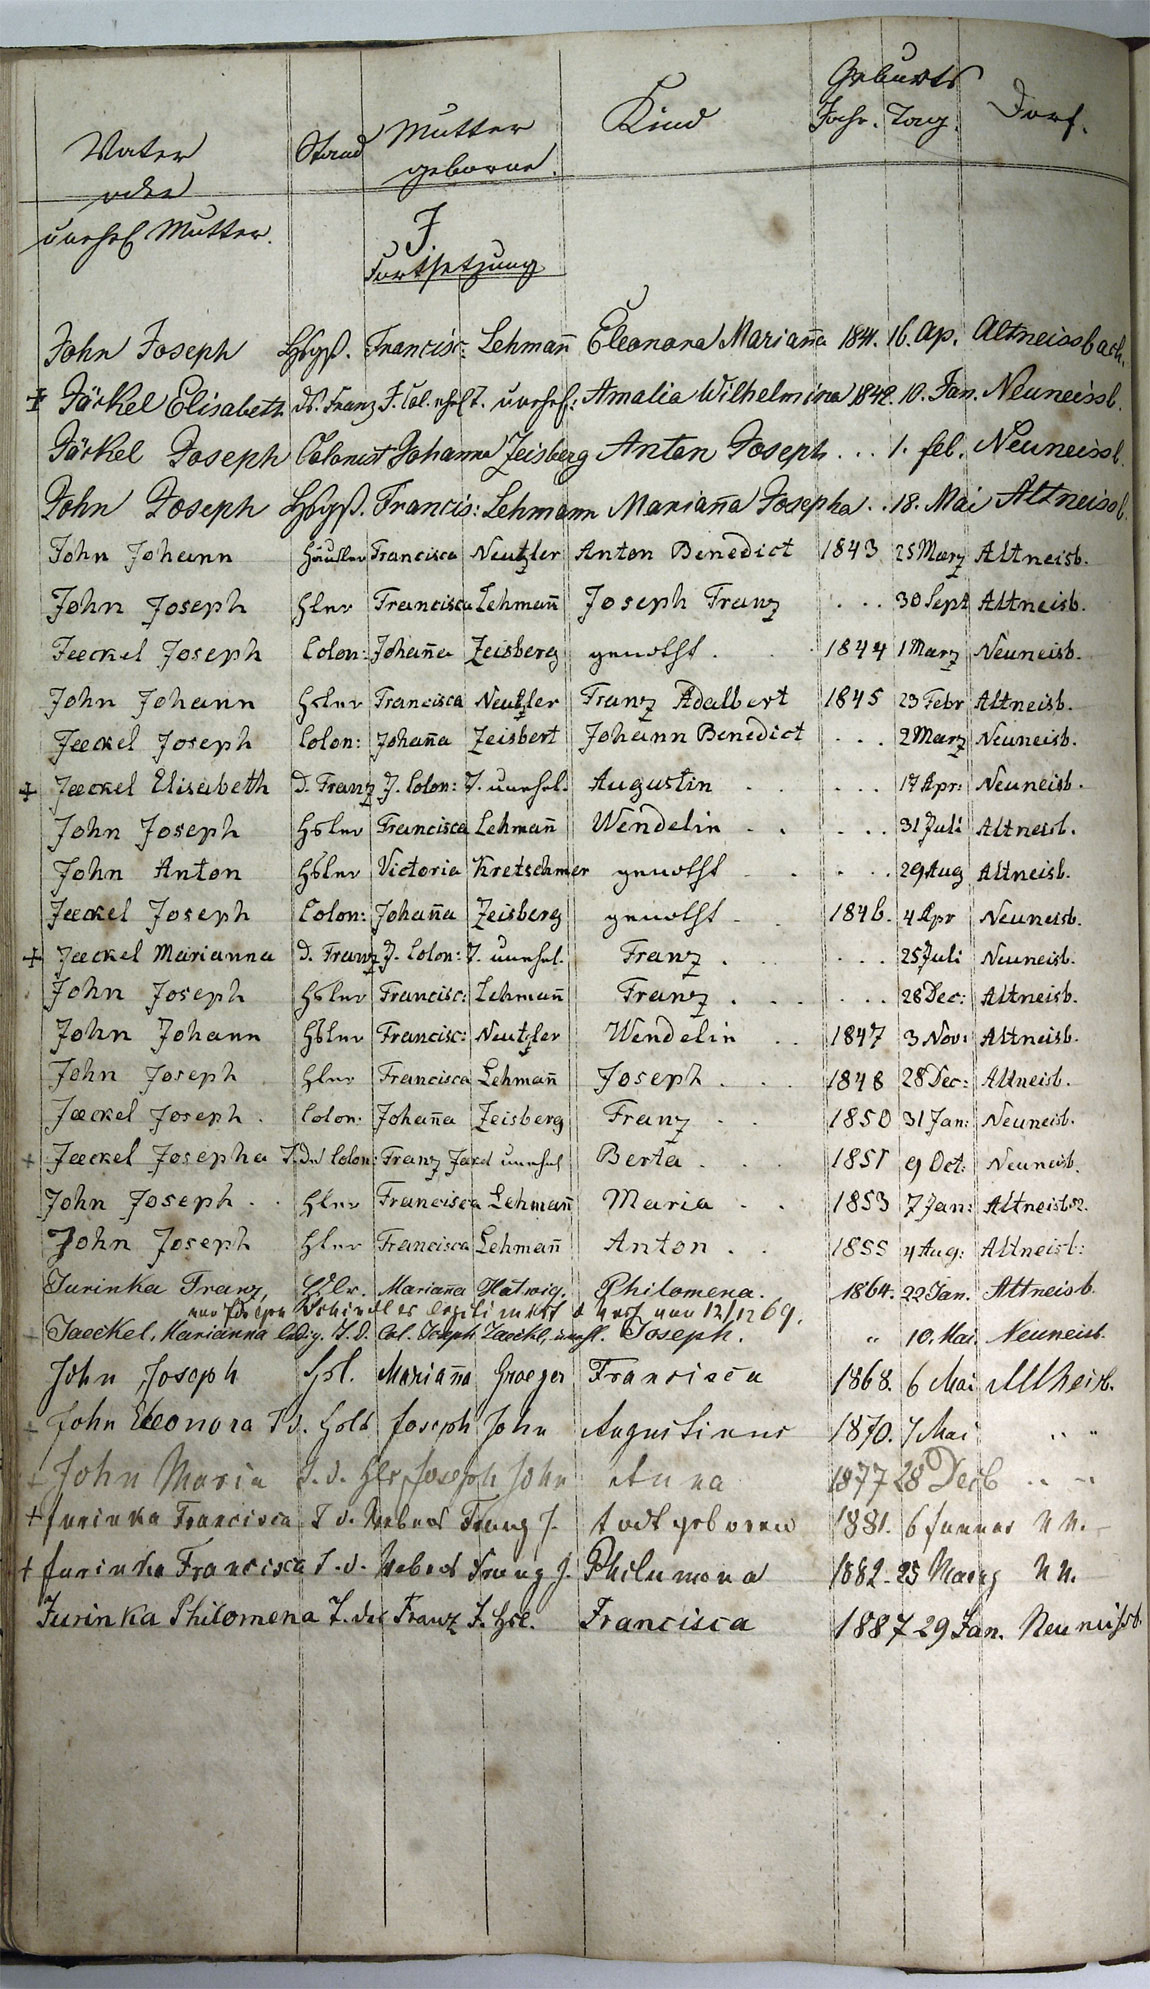 Geburts
Vater oder unehel Mutter. Stand Mutter geborne. Kind Jahr. Tag. Dorf.
J.
Fortsetzung
John Joseph Francisc: Lehman̄ Eleonora Marian̄a 1841. 16. Ap. Altneissbach.
+ Jäckel Elisabeth. Franz J. Col. unehel: Amalia Wilhelmina 1842. 10. Jan. Neuneissb.
Jäckel Joseph Colonist Johanna Zeisberg Anton Joseph . . . 1. feb. Neuneissb.
John Joseph Francis: Lehmann Marian̄a Josepha . . 18. Mai Altneissb.
John Johann Häusler Francisca Neutzler Anton Benedict 1843 25 Marz Altneisb.
John Joseph Hsler Francisca Lehman̄ Joseph Franz . . . 30 Sept Altneisb.
Jeeckel Joseph Colon: Johan̄a Zeisberg genothf. 1844 1 Marz Neuneisb.
John Johann Hsler Francisca Neutzler Franz Adalbert 1845 23 Febr Altneisb.
Jeeckel Joseph Colon: Johan̄a Zeisbert Johann Benedict . . . 2 Marz Neuneisb.
+ Jeeckel Elisabeth d. Franz J. Colon: T. unehel. Augustin . . . . 17 Apr: Neuneisb.
John Joseph Hsler Francisca Lehman̄ Wendelin . . . . . 31 Juli Altneisb.
John Anton Hsler Victoria Kretschmer genothf . . . . . 29 Aug Altneisb.
Jeeckel Joseph Colon: Johan̄a Zeisberg genothf . 1846. 4 Apr Neuneisb.
+ Jeeckel Marianna d. Franz J. Colon: T. unehel. Franz . . . . 25 Juli Neuneisb.
John Joseph Hsler Francisc: Lehman̄ Franz . . . . . . 28 Dec: Altneisb.
John Johann Hsler Francisc: Neutzler Wendelin . . 1847 3 Nov: Altneisb.
John Joseph Hsler Francisca Lehman̄ Joseph . . . 1848 28 Dec: Altneisb.
Jeeckel Joseph . Colon: Johan̄a Zeisberg Franz . . 1850 31 Jan: Neuneisb.
+ Jeeckel Josepha T. Des Colon: Franz unehel Berta . . . 1851 9 Oct: Neuneisb.
John Joseph . . Hsler Francisca Lehman̄ Maria . . 1853 7 Jan: Altneisb
John Joseph Hsler Francisca Lehman̄ Anton . . 1855 4 Aug: Altneisb:
Jurinka Franz, Hslr. Marian̄a Hatwig. Philomena. 1864. 22 Jan. Altneisb.
12/12 69.
+ Jaeckel, Marianna ledig. T. d. Col. Joseph Jaeckel, unehl. Joseph. " 10. Mai. Neuneisb.
John Joseph Hsl. Marian̄a Graeger Francisca 1868. 6 Mai Altneisb.
+ John Eleonora T d. Joseph John Augustinus 1870. 7 Mai " "
+ John Maria T. d. Hsler Joseph John Anna 1877 28 Decb " "
+ Jurinka Francisca T d. Webers Franz J. todt geboren 1881. 6 Januar N N.
+ Jurinka Francisca T. d. Webers Franz J. Philumena 1882. 25 Maerz N N.
Jurinka Philomena T. des Franz J. Hsl. Francisca 1887 29 Jan. Neuneissb.